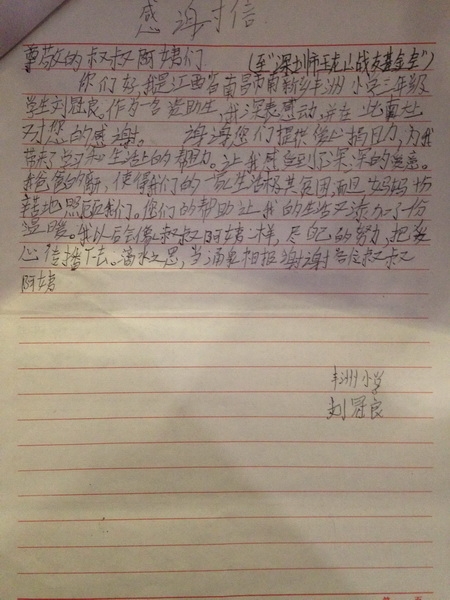 感谢信
尊敬的叔叔阿姨们 (至"深圳市王老山战友基金会")
你们好,我是江西省南昌市南新乡丰洲小学三年级
学生刘冠良。作为一名资助生,我深表感动,并在此
对您的感谢。 您们提供爱心捐助,为我
带来了学习和生活上的帮助。让我感到深深的
爸爸的 使得我们的 生活极其贫困,而且妈妈
照顾我们。您们的帮助让我的生活又添加了一份
温暖。我以后会像叔叔阿姨一样,尽自己的努力,把爱
心传播下去。滴水之恩,当涌泉相报谢谢各位叔叔
阿姨
丰洲小学
刘冠良